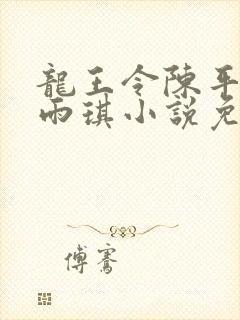 龍王令陳平
雨琪小說免
傅騫